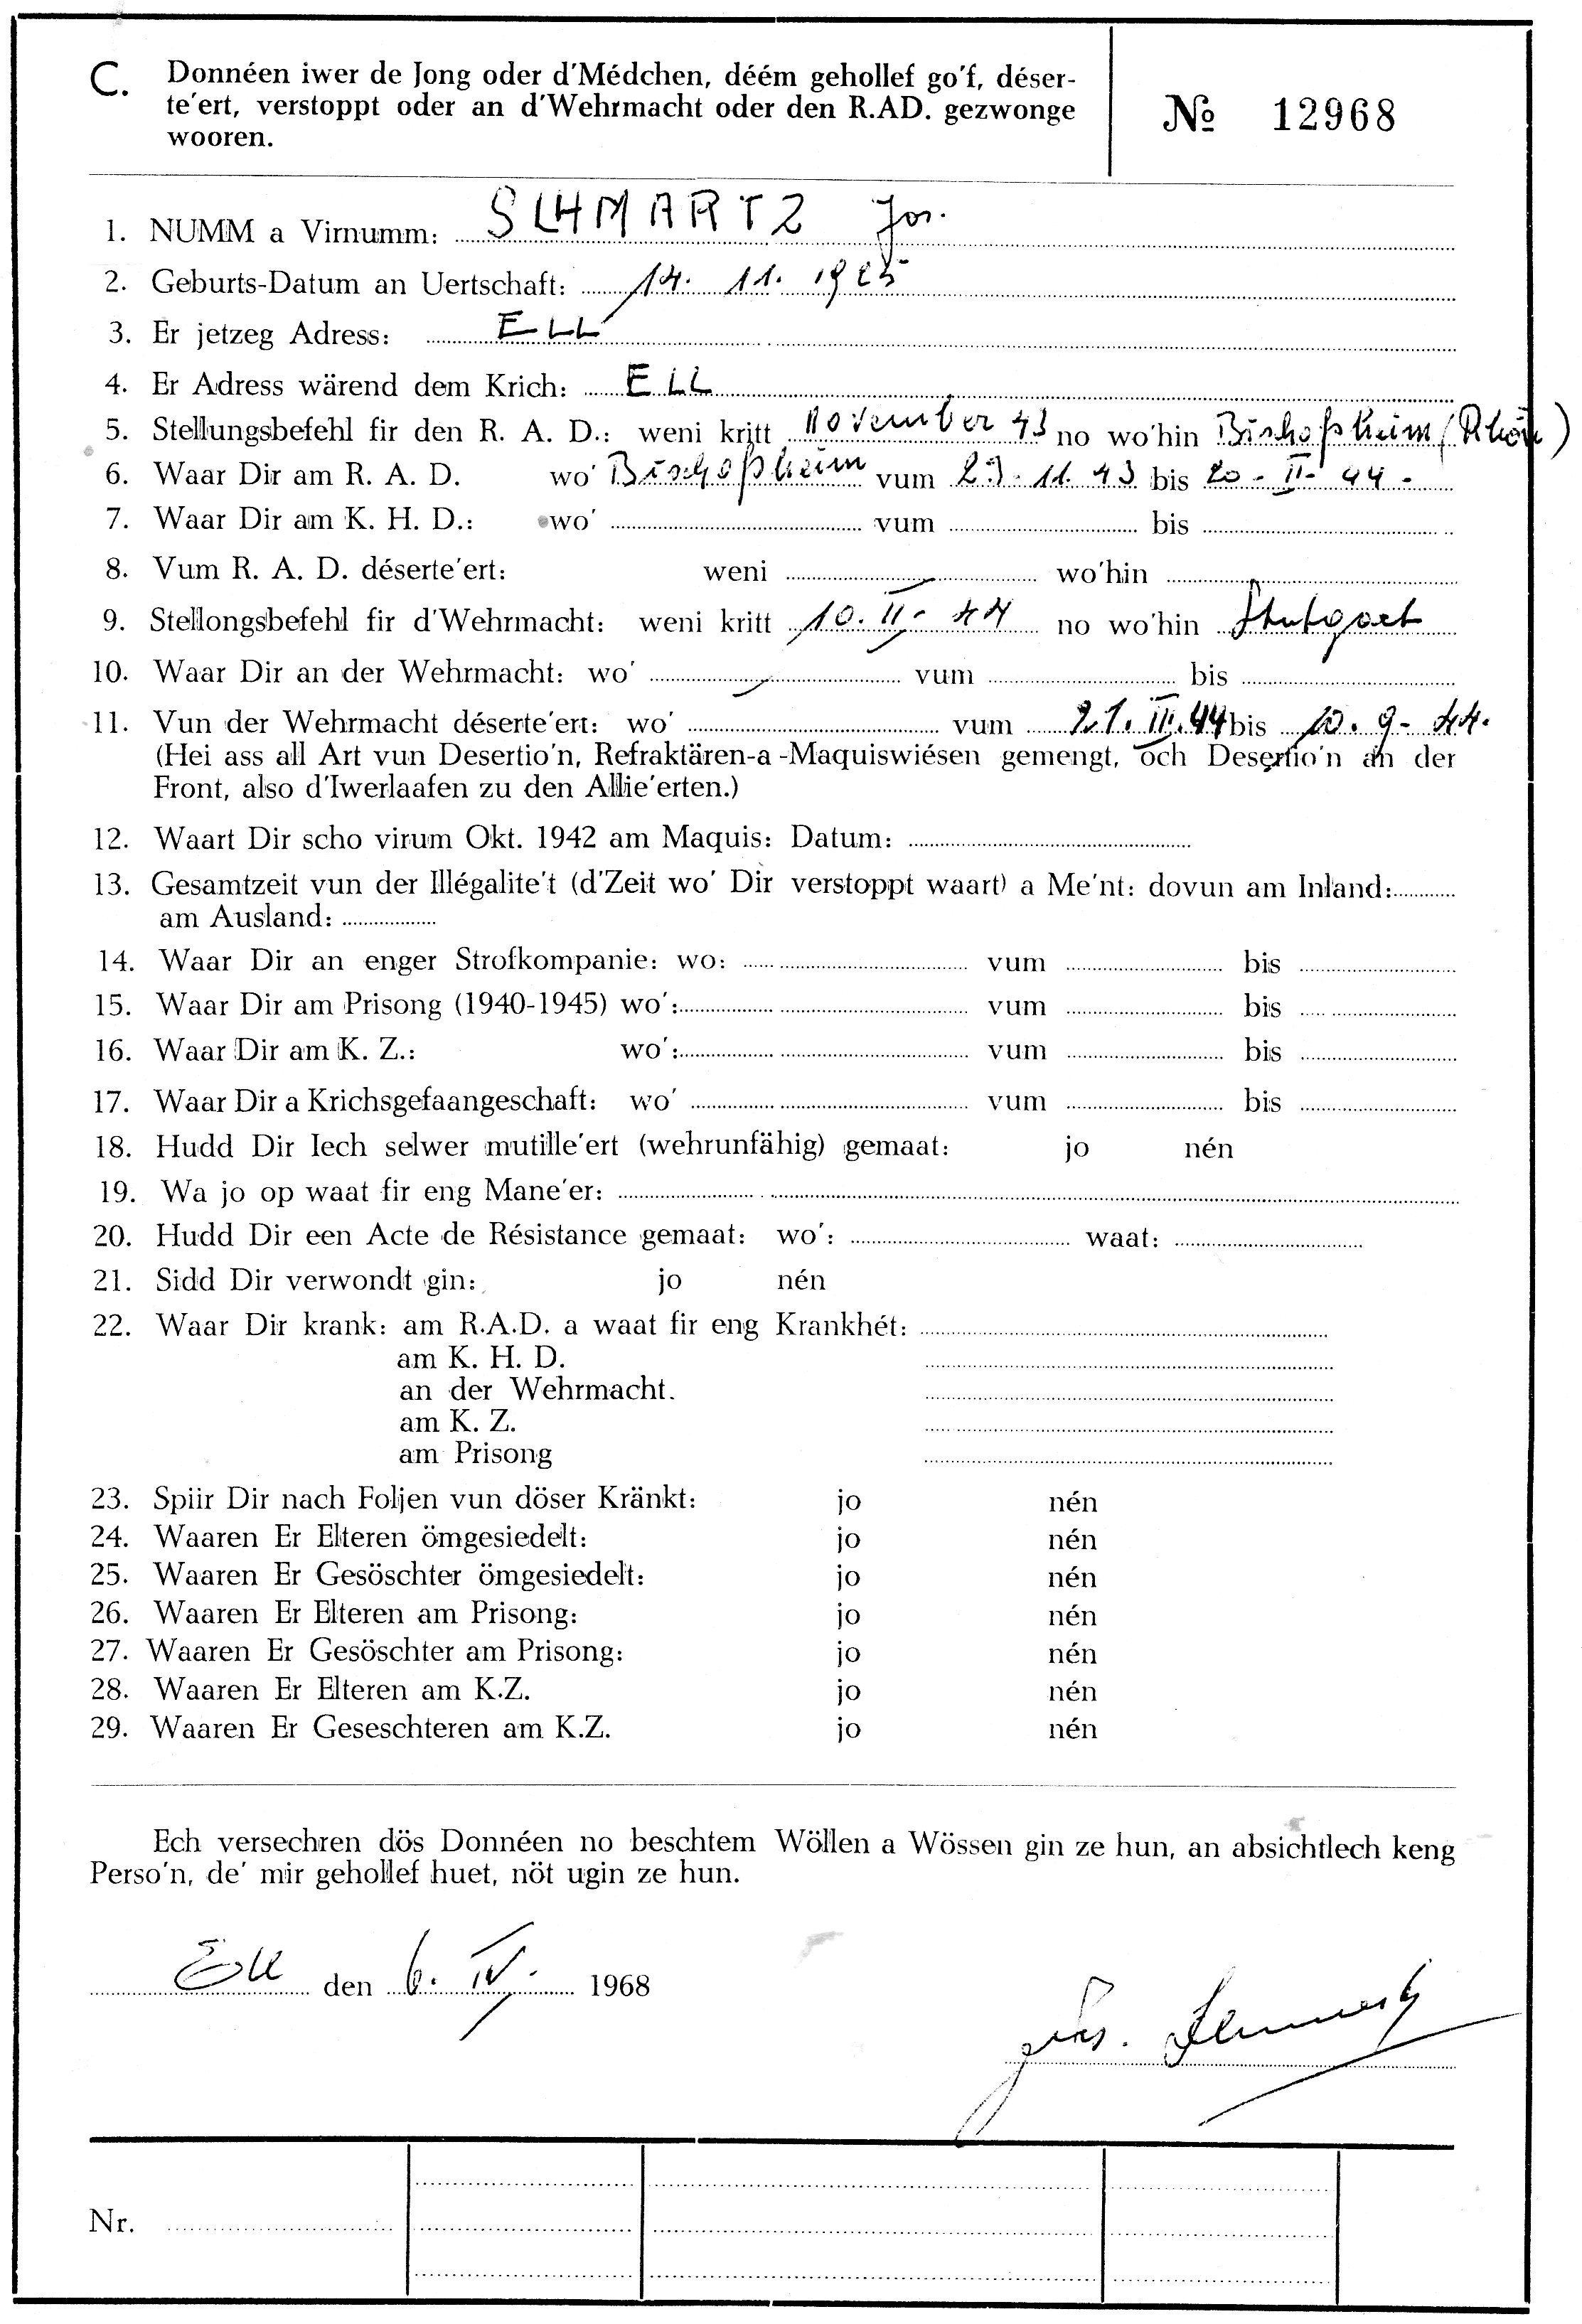 C. Donnéen iwer de Jong oder d'Médchen, déém gehollef go'f, déser-
te'ert, verstoppt oder an d'Wehrmacht oder den R.AD. gezwonge
wooren.
№ 12968
1. NUMM a Virnumm: SCHMARTZ Jos.
2. Geburts-Datum an Uertschaft: 14. 11. 1925
3. Er jetzeg Adress: ELL
4. Er Adress wärend dem Krich: ELL
5. Stellungsbefehl fir den R. A. D.: weni kritt November 43 no wo'hin Bischofsheim (Rhön)
6. Waar Dir am R. A. D. wo' Bischofsheim vum 29. 11. 43 bis 20 - II - 44 -
7. Waar Dir am K. H. D.: wo' vum bis
8. Vum R. A. D. déserte'ert: weni wo'hin
9. Stellongsbefehl fir d'Wehrmacht: weni kritt 10. II - 44 no wo'hin Stutgart
10. Waar Dir an der Wehrmacht: wo' vum bis
11. Vun der Wehrmacht déserte'ert: wo' vum 21. III. 44 bis 10. 9 - 44.
(Hei ass all Art vun Desertio'n, Refraktären-a -Maquiswiésen gemengt, och Desertio'n an der
Front, also d'Iwerlaafen zu den Allie'erten.)
12. Waart Dir scho virum Okt. 1942 am Maquis: Datum:
13. Gesamtzeit vun der Illégalite't (d'Zeit wo' Dir verstoppt waart) a Me'nt: dovun am Inland:
am Ausland:
14. Waar Dir an enger Strofkompanie: wo: vum bis
15. Waar Dir am Prisong (1940-1945) wo': vum bis
16. Waar Dir am K. Z.: wo': vum bis
17. Waar Dir a Krichsgefaangeschaft: wo' vum bis
18. Hudd Dir Iech selwer mutille'ert (wehrunfähig) gemaat: jo nén
19. Wa jo op waat fir eng Mane'er:
20. Hudd Dir een Acte de Résistance gemaat: wo': waat:
21. Sidd Dir verwondt gin: jo nén
22. Waar Dir krank: am R.A.D. a waat fir eng Krankhét:
am K. H. D.
an der Wehrmacht.
am K. Z.
am Prisong
23. Spiir Dir nach Foljen vun döser Kränkt: jo nén
24. Waaren Er Elteren ömgesiedelt: jo nén
25. Waaren Er Gesöschter ömgesiedelt: jo nén
26. Waaren Er Elteren am Prisong: jo nén
27. Waaren Er Gesöschter am Prisong: jo nén
28. Waaren Er Elteren am K.Z. jo nén
29. Waaren Er Geseschteren am K.Z. jo nén
Ech versechren dös Donnéen no beschtem Wöllen a Wössen gin ze hun, an absichtlech keng
Perso'n, de' mir gehollef huet, nöt ugin ze hun.
Ell den 6. IV. 1968
Jos.
Nr.